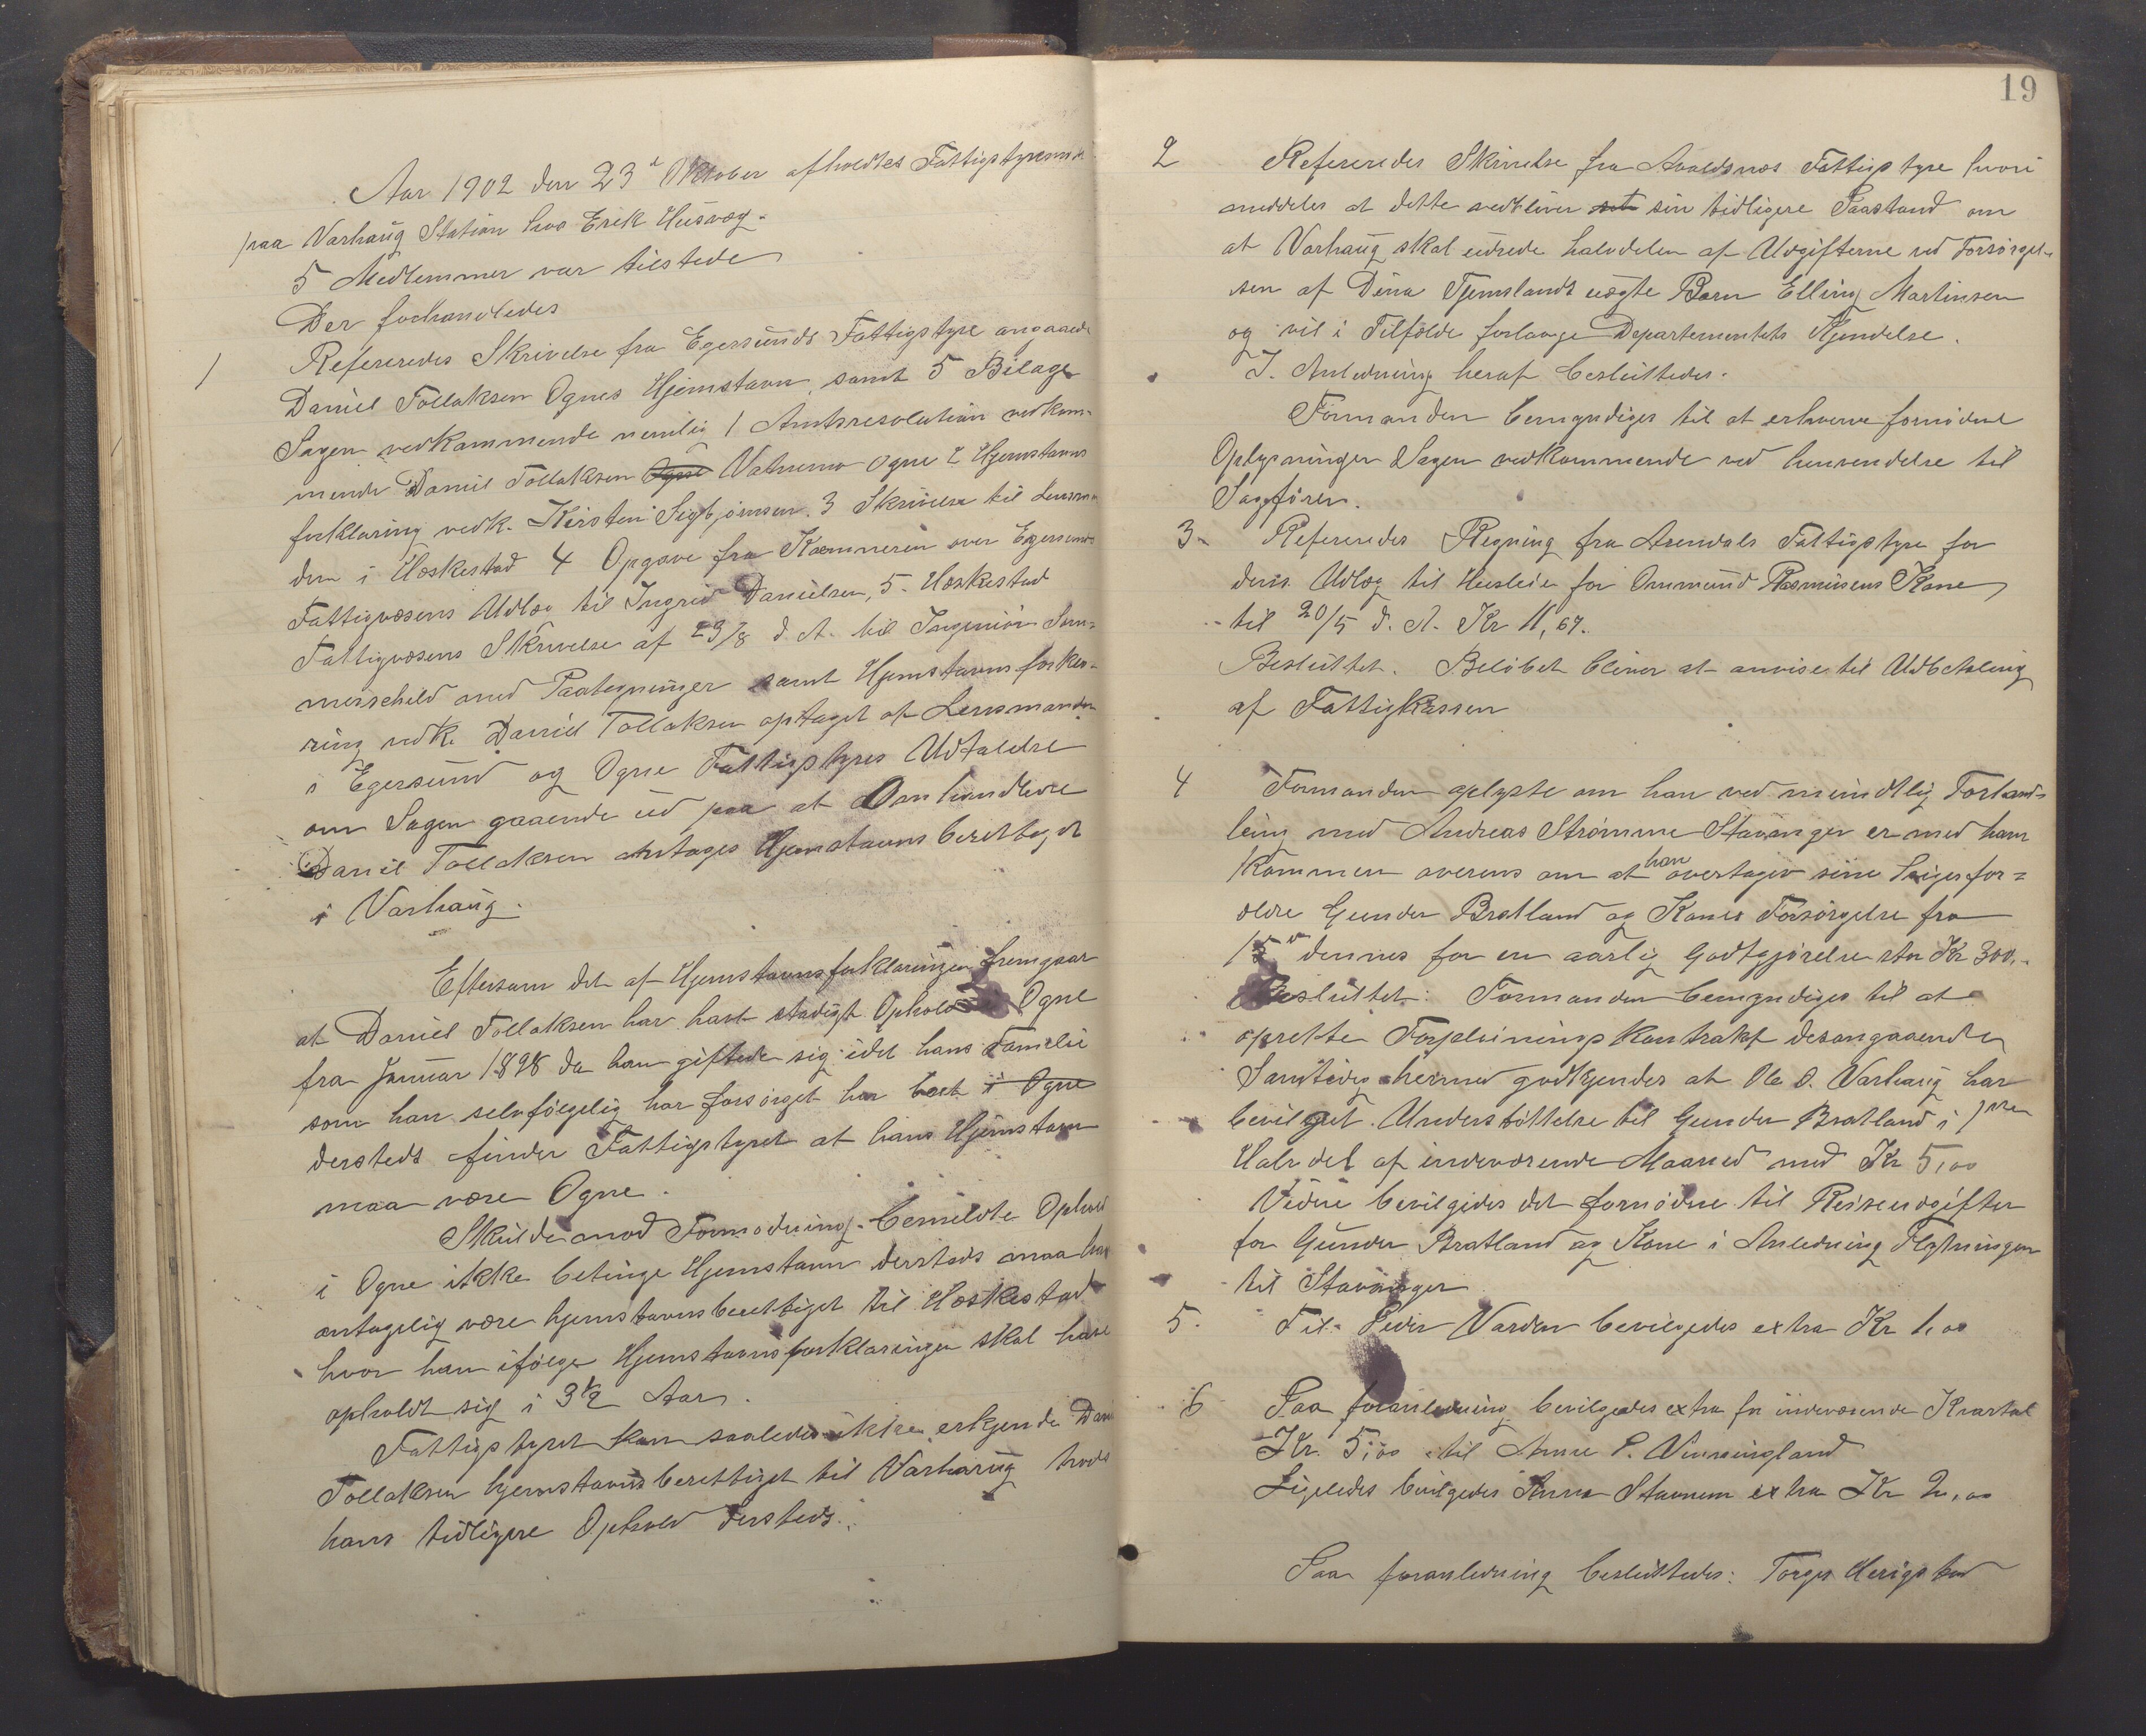 Aar 1902 den 23d Oktober afholdtes Fattigstyremøde
paa Varhaug Station hos Erik Husvæg.
5 Medlemmer var tilstede
Der forhandledes
1 Refereredes Skrivelse fra Egersunds Fattigstyre angaaende
Daniel Tollaksen Ognes Hjemstavn, samt 5 Bilage
Sagen vedkommende nemlig 1 Amtsresolution vedkom-
mende Daniel Tollaksen Ogne Vatnemo Ogne 2 Hjemstavns
forklaring vedk. Kirsten Sigbjørnsen. 3 Skrivelse til Lensman
den i Heskestad 4 Opgave fra Kæmneren over Egersunds
Fattigvæsens Udlæg til Ingrid Danielsen, 5. Heskestad
Fattigvæsens Skrivelse af 23/8 d. A. til Ingeniør Som-
merschild med Paategninger samt Hjemstavnsforkla-
ring vedk. Daniel Tollaksen optaget af Lensmanden
i Egersund og Ogne Fattigstyres Udtalelse
om Sagen gaaende ud paa at Omhandlede
Daniel Tollaksen antages Hjemstavnsberettiget
i Varhaug.
Eftersom det af Hjemstavnsforklaringen fremgaar
at Daniel Tollaksen har havt stadigt Ophold i Ogne
fra Januar 1898 da han giftede sig idet hans Familie
som han selvfølgelig har forsørget har boet i Ogne
dersteds finder Fattigstyret at hans Hjemstavn
maa være Ogne.
Skulde mod Formodning bemeldte Ophold
i Ogne ikke betinge Hjemstavn dersteds maa han
antagelig være hjemstavnsberettiget til Heskestad
hvor han ifølge Hjemstavnsforklaringen skal have
opholdt sig i 3½ Aar.
Fattigstyret kan saaledes ikke erkjende Dan
Tollaksen hjemstavnsberettiget til Varhaug trods
hans tidligere Ophold dersteds.
19
2 Refereredes Skrivelse fra Avaldsnes Fattigstyre hvori
meddeles at dette vedbliver sin tidligere Paastand om
at Varhaug skal udrede halvdelen af Udgifterne ved Forsørgel-
sen af Dina Tjemslands uægte Barn Elling Martinsen
og vil i Tilfælde forlange Departementets Kjendelse.
I Anledning heraf besluttedes.
Formanden bemyndiges til at erhverve fornødne
Oplysninger Sagen vedkommende ved henvendelse til
Sagfører.
3. Refereredes Regning fra Arendals Fattigstyre for
deres Udlæg til Husleie for Ommund Rasmusens Kone
til 20/5 d. A. Kr 11,67.
Besluttet. Beløbet bliver at anvise til Udbetaling
af Fattigkassen
4 Formanden oplyste om han ved mundtlig Forhand-
ling med Andreas Strømme Stavanger er med ham
kommen overens om at han overtager sine Svigerfor-
ældre Gunder Bratland og Kones Forsørgelse fra
15de dennes for en aarlig Godtgjørelse stor Kr 300,-
Besluttet: Formanden bemyndiges til at
oprette Forpleiningskontrakt desangaaende
Samtidig hermed godkjendes at Ole O. Varhaug har
bevilget Understøttelse til Gunder Bratland i 1ste
Halvdel af indeværende Maaned med Kr 5,00
Videre bevilgedes det fornødne til Reiseudgifter
for Gunder Bratland og Kone i Anledning Flytningen
til Stavanger
5. Til Peder Varden bevilgedes extra Kr 1,00
6 Paa foranledning bevilgedes extra for indeværende Kvartal
Kr. 5,00 til Anne P. Vinningland
Ligeledes bevilgedes Anna Stavnem extra Kr 2,00
Paa foranledning besluttedes: Torger Herigstad